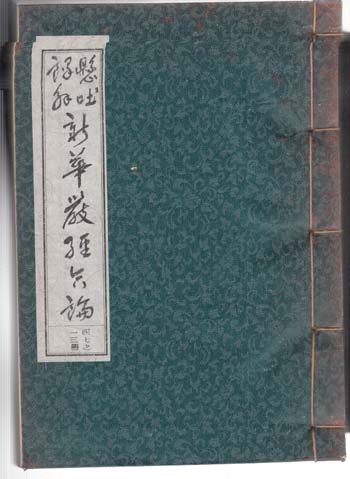 懸吐
譯解
新華嚴經合論
四七之
一三冊